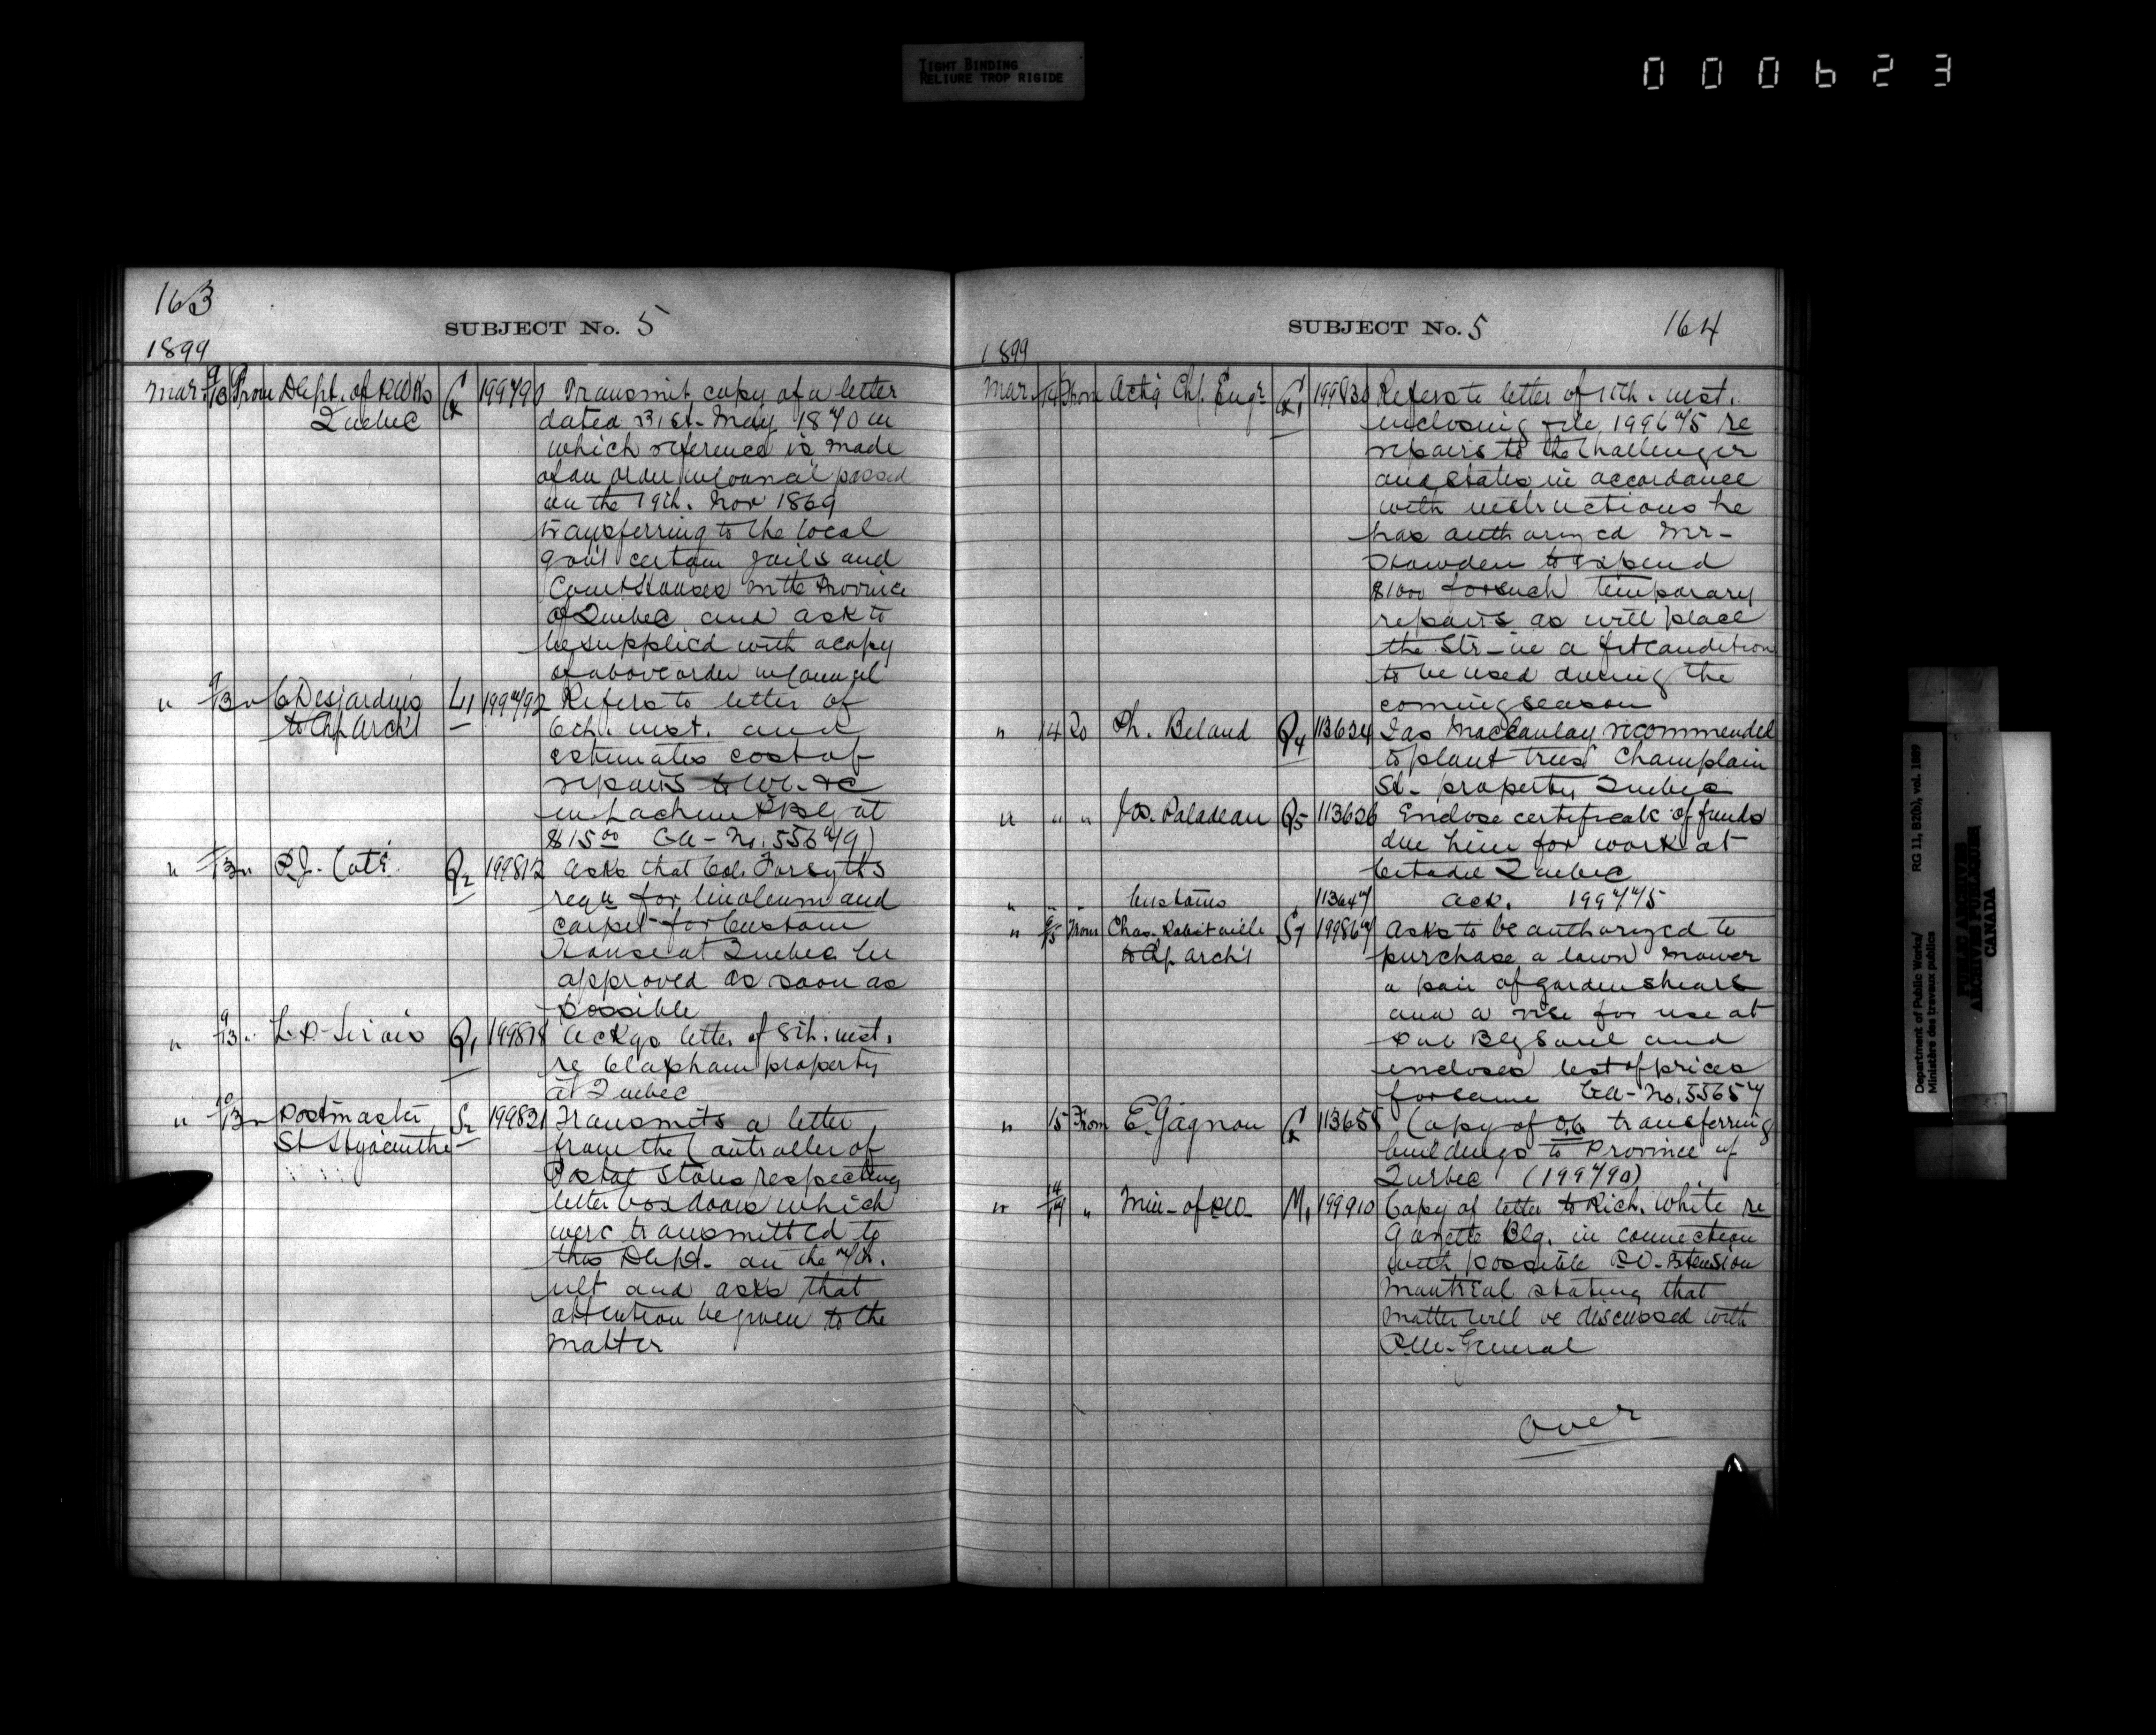 TIGHT BINDING
RELIURE TROP RIGIDE
000623
163
SUBJECT No. 5
1899
Mar. 9/13 From Dept. of P.Wks Q 199790 Transmit copy of a letter
Quebec dated 31st. May 1870 in
which reference is made
of an order in Council passed
on the 19th. Nov 1869
transferring to the local
gov't certain jails and
Court Houses in the Province
of Quebec and ask to
be supplied with a copy
of above order in Council
" 9/13 " C Desjardins L1 199792 Refers to letter of
to Chf Arch't 6th. inst. and
estimates cost of
repairs to W.C. &c
in Lachine P Blg at
$15.00 Ca - No. 55679)
" /13 " P.J. Coté Q2 199812 Asks that Col. Forsyth's
reqn for linoleum and
carpet for Custom
House at Quebec be
approved as soon as
possible
" 9/13 " L.P. Sirois Q1 199818 Ackgs letter of 8th. inst.
re Clapham property
at Quebec
" 10/13 " Postmaster S2 199821 Transmits a letter
St Hyacinthe from the Controller of
Postal Stores respecting
letter box doors which
were transmitted to
this Dept. on the 7th.
ult and asks that
attention be given to the
matter
SUBJECT No. 5
164
1899
Mar. /14 From Act'g Chf. Engr 199830 Refers to letter of 11th. inst.
enclosing file 199675 re
repairs to the Challenger
and states in accordance
with instructions he
has authorized Mr-
Howden to expend
$1000 for such temporary
repairs as will place
the Str - in a fit condition
to be used during the
coming season
" 14 To Ph. Beland Q4 113624 Jas MacCaulay recommended
to plant trees Champlain
St - property Quebec
" " " Jos. Paladeau Q5 113626 Enclose certificate of funds
due him for work at
Citadel Quebec
" " " Customs " 113647 Ack. 199775
" 9/15 From Chas. Robitaille S7 199867 Asks to be authorized to
to Chf. Arch't purchase a lawn mower
a pair of garden shears
and a vise for use at
Pub Blg Sorel and
encloses list of prices
for same Ca - No. 55657
" 15 From E. Gagnon Q 113658 Copy of O.C. transferring
buildings to Province of
Quebec (199790)
" 14/17 " Min - of P.W. M1 199910 Copy of letter to Rich. White re
Gazette Blg. in connection
with possible P.O. Extension
Montreal stating that
matter will be discussed with
P.M. General
over
Department of Public Works/ RG 11, B2(b), vol. 1989
Ministère des travaux publics
PUBLIC ARCHIVES
ARCHIVES PUBLIQUES
CANADA